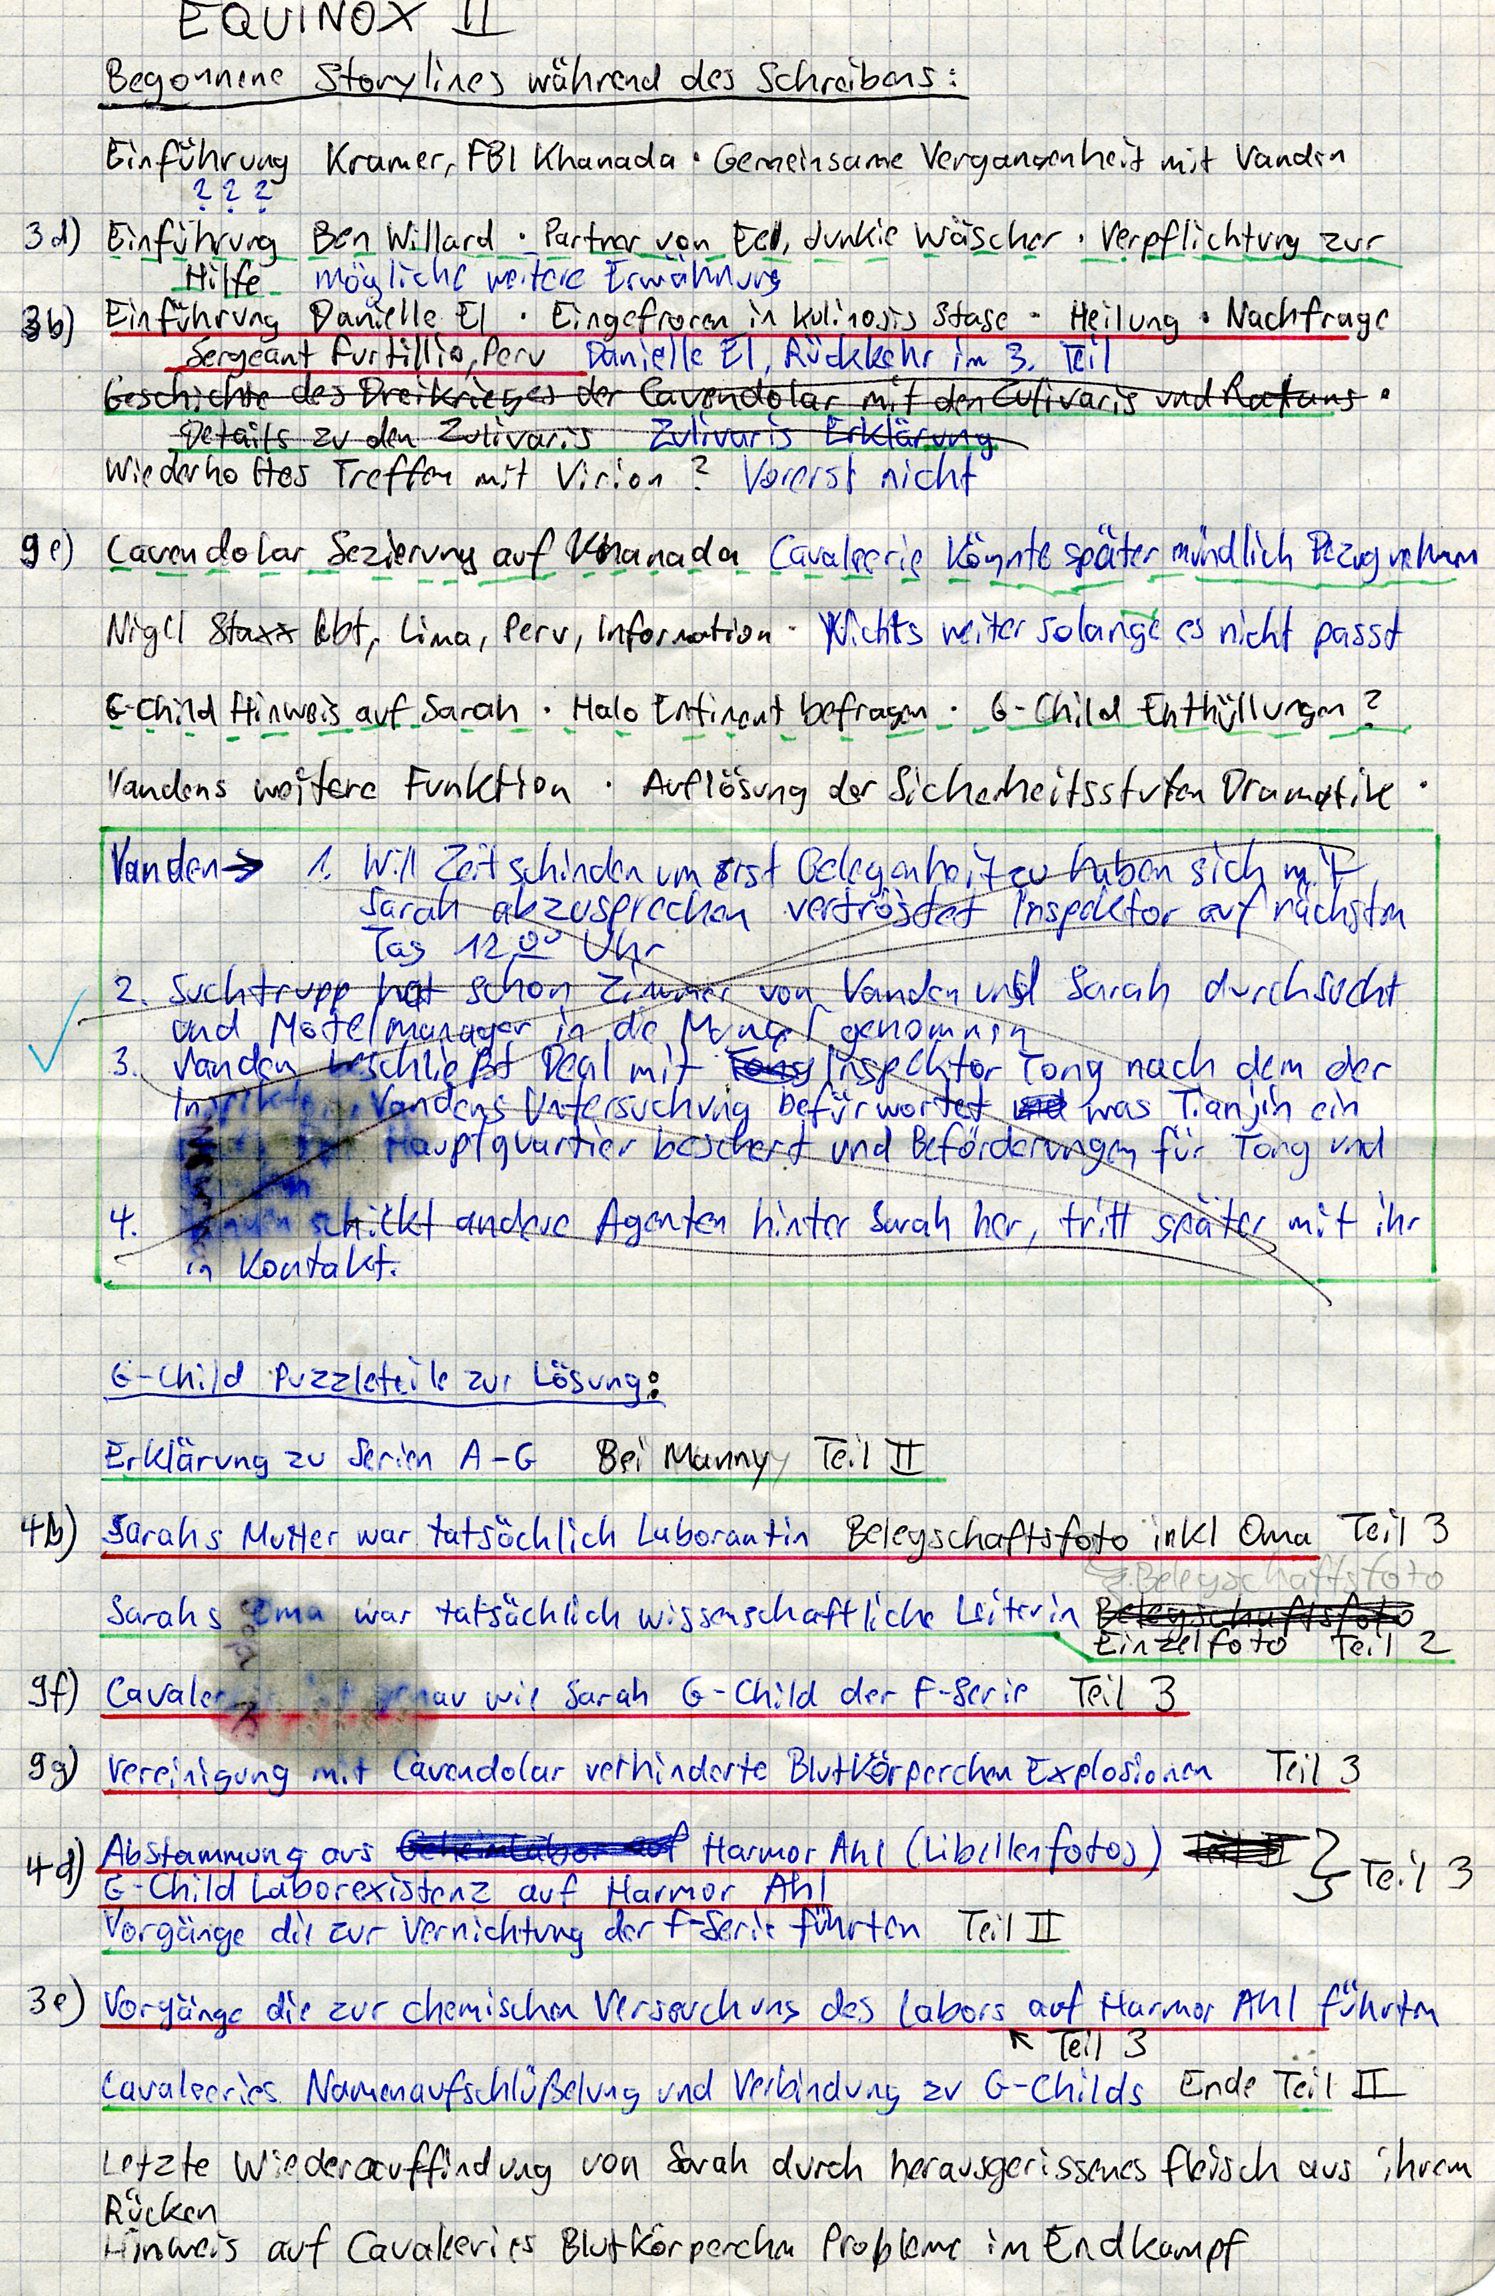 EQUINOX II
Begonnene Storylines während des Schreibens:
Einführung Kramer, FBI Khanada · Gemeinsame Vergangenheit mit Vanden
? ? ?
3d) Einführung Ben Willard · Partner von Eel, Junkie Wäscher · Verpflichtung zur
Hilfe mögliche weitere Erwähnung
3b) Einführung Danielle El · Eingefroren in kulinosis Stase · Heilung · Nachfrage
Sergeant Furtillio, Peru Danielle El, Rückkehr im 3. Teil
Geschichte des Dreikrieges der Cavendolar mit den Zulivaris und Ratans ·
Details zu den Zulivaris Zulivaris Erklärung
Wiederholtes Treffen mit Virion? Vorerst nicht
9e) Cavendolar Sezierung auf Khanada Cavaleerie könnte später mündlich Bezug nehmen
Nigel Staxx lebt, Lima, Peru, Information · Nichts weiter solange es nicht passt
G-Child Hinweis auf Sarah · Halo Entinent befragen · G-Child Enthüllungen?
Vandens weitere Funktion · Auflösung der Sicherheitsstufen Dramatik ·
Vanden → 1. Will Zeit schinden um erst Gelegenheit zu haben sich mit
Sarah abzusprechen vertröstet Inspektor auf nächsten
Tag 12 00 Uhr
2. Suchtrupp hat schon Zimmer von Vanden und Sarah durchsucht
und Motelmanager in die Mangel genommen
3. Vanden beschließt Deal mit Tong Inspektor Tong nach dem der
Vandens Untersuchung befürwortet und was Tianjin ein
Hauptquartier beschert und Beförderungen für Tong und
4. schickt andere Agenten hinter Sarah her, tritt später mit ihr
in Kontakt.
G-Child Puzzleteile zur Lösung:
Erklärung zu Serien A-G Bei Manny Teil II
4b) Sarahs Mutter war tatsächlich Laborantin Belegschaftsfoto inkl Oma Teil 3
2. Belegschaftsfoto
Sarahs Oma war tatsächlich wissenschaftliche Leiterin Belegschaftsfoto
Einzelfoto Teil 2
9f) genau wie Sarah G-Child der F-Serie Teil 3
9g) Vereinigung mit Cavendolar verhinderte Blutkörperchen Explosionen Teil 3
4d) Abstammung aus Geheimlabor auf Harmor Ahl (Libellenfotos) Teil II } Teil 3
G-Child Laborexistenz auf Harmor Ahl
Vorgänge die zur Vernichtung der F-Serie führten Teil II
3e) Vorgänge die zur chemischen Verseuchung des Labors auf Harmor Ahl führten
↖ Teil 3
Cavaleeries Namenaufschlüßelung und Verbindung zu G-Childs Ende Teil II
Letzte Wiederauffindung von Sarah durch herausgerissenes Fleisch aus ihrem
Rücken
Hinweis auf Cavaleeries Blutkörperchen Probleme im Endkampf